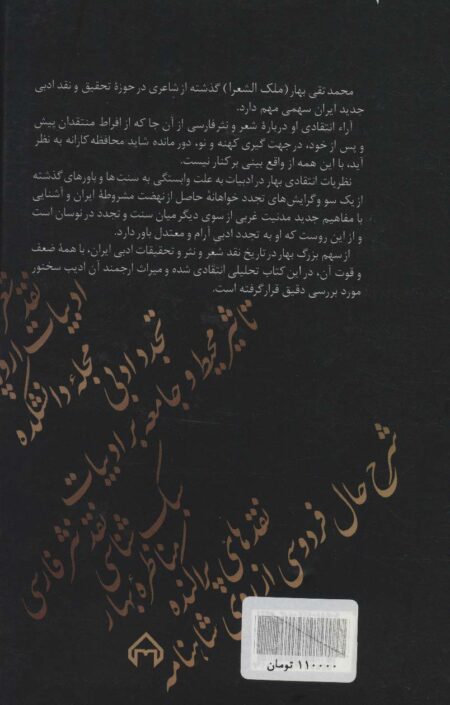 محمدتقی بهار (ملک الشعرا) گذشته از شاعری در حوزهٔ تحقیق و نقد ادبی
جدید ایران سهمی مهم دارد.
آراء انتقادی او دربارهٔ شعر و نثر فارسی از آن جا که از افراط منتقدان پیش
و پس از خود، در جهت گیری کهنه و نو، دور مانده شاید محافظه کارانه به نظر
آید، با این همه از واقع بینی برکنار نیست.
نظریات انتقادی بهار در ادبیات به علت وابستگی به سنت‌ها و باورهای گذشته
از یک سو و گرایش‌های تجدد خواهانهٔ حاصل از نهضت مشروطهٔ ایران و آشنایی
با مفاهیم جدید مدنیت غربی از سوی دیگر میان سنت و تجدد در نوسان است
و از این روست که او به تجدد ادبی آرام و معتدل باور دارد.
از سهم بزرگ بهار در تاریخ نقد شعر و نثر و تحقیقات ادبی ایران، با همهٔ ضعف
و قوت آن، در این کتاب تحلیلی انتقادی شده و میراث ارجمند آن ادیب سخنور
مورد بررسی دقیق قرار گرفته است.
نقد شعر
ادبیات اروپا
مجلهٔ دانشکده
تجدد ادبی
تاثیر محیط و جامعه بر ادبیات
نقد نثر فارسی
سبک شناسی
مناظرهٔ بهار
نقدهای پراکنده
شرح حال فردوسی از روی شاهنامه
۱۱۰۰۰۰ تومان